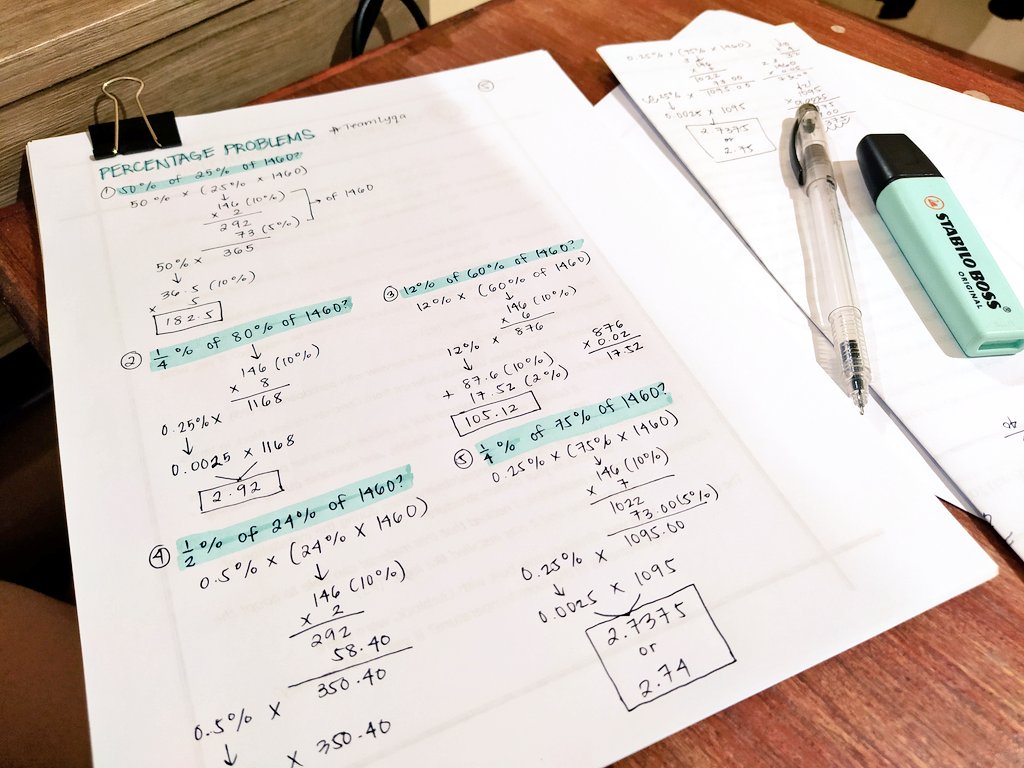 PERCENTAGE PROBLEMS
#TeamLyqa
① 50% of 25% of 1460?
50% × (25% × 1460)
↓
146 (10%)
× 2
292
73 (5%)
365
→ of 1460
50% ×
↓
36.5 (10%)
× 5
182.5
② 1/4 % of 80% of 1460?
↓
146 (10%)
× 8
1168
0.25% ×
↓
0.0025 × 1168
2.92
③ 12% of 60% of 1460?
12% × (60% of 1460)
↓
146 (10%)
× 6
876
12% ×
↓
87.6 (10%)
+ 17.52 (2%)
105.12
876
× 0.02
17.52
④ 1/2 % of 24% of 1460?
0.5% × (24% × 1460)
↓
146 (10%)
× 2
292
58.40
350.40
0.5% ×
↓
× 350.40
⑤ 1/4 % of 75% of 1460?
0.25% × (75% × 1460)
↓
146 (10%)
× 7
1022
73.00 (5%)
1095.00
0.25% ×
↓
0.0025 × 1095
2.7375
or
2.74
0.25% × (75% × 1460)
146
1022
73.00
1095.00
0.25% ×
↓
0.0025 × 1095
2.7375
or
2.75
1095
× 0.0025
STABILO BOSS
ORIGINAL